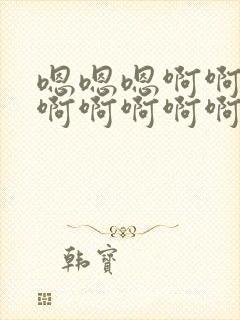 嗯嗯嗯啊啊
啊啊啊啊啊
韩寶